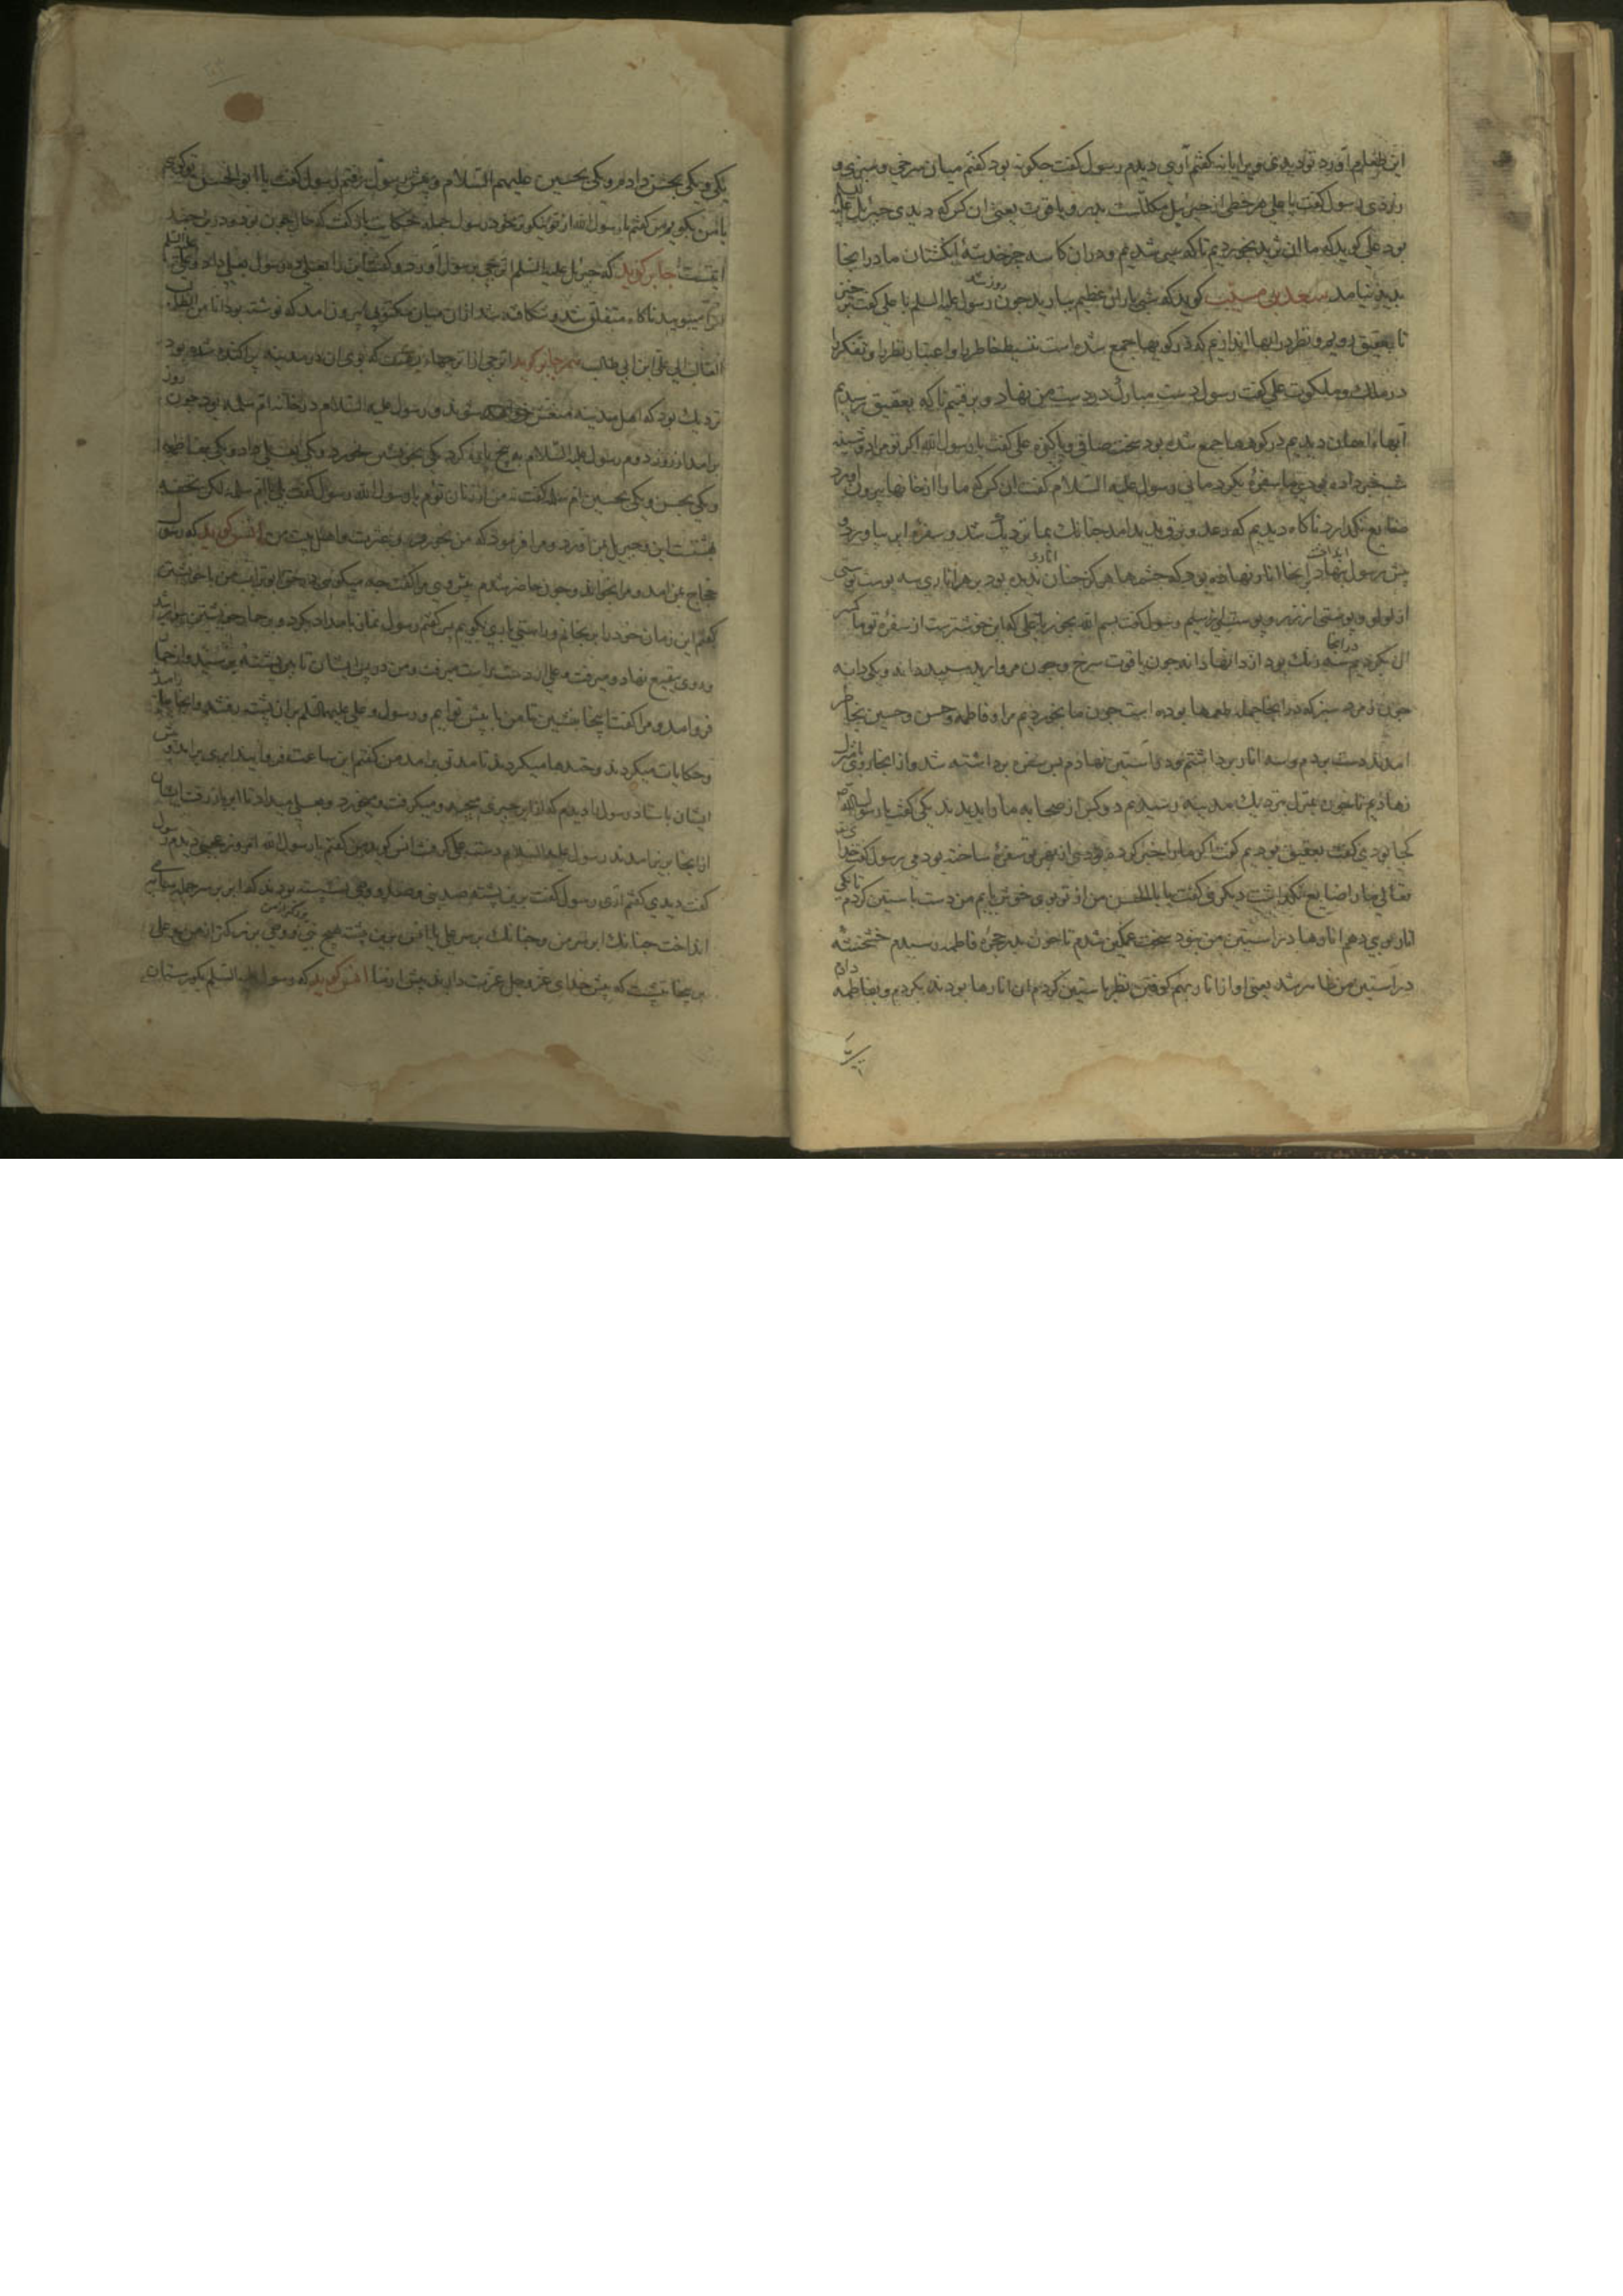 این طعام آورد تو دیدی ویرا یا نه کفتم آری دیدم رسول کفت چکونه بود کفتم میان سرخی و سبزی و
زردی رسول کفت یا علی هر خطی از جبریل مکللست بدر و یاقوت یعنی ان کس که دیدی جبریل علیه السلم
بود علی کوید که ما ان ثرید بخوردیم تا که سیر شدیم و در ان کاسه جز خدشهٔ انکشتان ما در انجا
بدید نیامد سعد بن مسیب کوید که شبی باران عظیم ببارید جون روز شد رسول علیه السلم با علی کفت خیز
تا بعقیق رویم و نظر در ابها اندازیم که در کوهها جمع شده است تنشیط خاطر را و اعتبار نظر را و تفکر را
در ملک و ملکوت علی کفت رسول دست مبارک در دست من نهاد و برفتیم تا که بعقیق رسیدیم
آبهاء دیدیم در کوهها جمع شده بود سخت صافی و پاکیزه علی کفت یا رسول الله اکر تو مرا دوشینه
خبر داده بودی ما سفرهٔ بکردمانی رسول علیه السلام کفت ان کس که ما را از خانها بیرون آورد
ضایع نکذارد ناکاه دیدیم که رعد و برقی بدید امد جنانک بما نزدیک شد و سفرهٔ ابر بیاورد و
پیش رسول بنهاد در انجا انار نهاده بود که جشمها هرکز جنان اناری ندیده بود بر هر اناری سه پوست پوستی
از لولو و پوستی از زر و پوستی از سیم رسول کفت بسم الله بخور یا علی که این خوشترست از سفرهٔ تو ما
بکردیم در انجا سه رنک بود از دانها دانه جون یاقوت سرخ و جون مروارید سپید دانه و یکی دانه
جون زمرد سبز که در انجا جمله طعمها بوده است جون ما بخوردیم مرا و فاطمه و حسن و حسین بخاطر
امدند دست بردم و سه انار برداشتم و در استین نهادم پس سفره برداشته شد و از انجا روی با منزل
نهادیم تا جون بمنزل نزدیک مدینه رسیدیم دو کس از صحابه ما را بدیدند یکی کفت یا رسول الله
کجا بودی کفت بعقیق بودیم کفت اکر ما را خبر کرده بودی از بهر تو سفرهٔ ساخته بودمی رسول کفت خدا
تعالی ما را ضایع نکذاشت دیکری کفت یا ابا الحسن من از تو بوی خوش یابم من دست باستین کردم تا یکی
انار بوی دهم انارها در استین من نبود سخت غمکین شدم تا جون بدر حجرهٔ فاطمه رسیدم خشخشه
در استین من ظاهر شد یعنی اواز انار بهم کوفتن نظر باستین کردم ان انارها بودند یکی و بفاطمه دادم
یکی و یکی بحسن دادم و یکی بحسین علیهم السلام و پیش رسول رفتم رسول کفت یا ابا الحسن تو کوی
یا من بکویم من کفتم یا رسول الله از تو نیکوتر بود رسول جمله حکایت باز کفت که حال جون بود و در
جابر کوید که جبریل علیه السلم ترنجی برسول آورد و کفت این را بعلی ده رسول بعلی داد و علی
ناکاه متفلق شد و شکافته شد از ان میان مکتوبی بیرون امد که نوشته بود انا من الطالب
الغالب الی علی ابن ابی طالب هم جابر کوید ترنجی از ترنجهاء بهشت که بوی ان در مدینه پراکنده شده بود
نزدیک بود که اهل مدینه شوند و رسول علیه السلام در خانه ام سلمه بود جون روز
برامد از روز دوم رسول علیه السلام به پنج پاره کرد یکی بخویشتن بخورد و یکی بعلی داد و یکی بفاطمه
و یکی بحسن و یکی بحسین ام سلمه کفت نه من از زنان توم یا رسول الله رسول کفت بلی یا ام سلمه لکن تحفه
بهشتست این جبریل بمن آورد و مرا فرمود که من بخورم و عترت و اهل بیت من انس کوید که رسول
حجاج بمن امد و مرا بخواند و جون حاضر شدم پیش وی مرا کفت جه میکویی در حق ابو تراب من با خویشتن
کفتم این زمان خود را برنجانم و راستی با وی بکویم پس کفتم رسول نماز بامداد بکرد و
و روی ببقیع نهاد و میرفت و علی از دست راست میرفت و من در پی ایشان تا
فرو امد و مرا کفت اینجا بنشین تا من با پیش تو ایم و رسول و علی علیهما السلم بران پشته رفتند و انجا
و حکایات میکردند و خندها میکردند تا مدتی برامد من کفتم این ساعت فرو ایند ابری برامد و
ایشان باستاد رسول را دیدم که از ابر چیزی میجید و میکرفت و میخورد و بعلی میداد تا ابر باز رفت
از انجا بزیر امدند رسول علیه السلام دست علی کرفت انس کوید من کفتم یا رسول الله امروز عجبی دیدم رسول
کفت دیدی کفتم آری رسول کفت برین پشته صد نبی و صد وصی نشسته بودند که ابر بر سر جمله سایه
انداخت جنانک ابر بر سر من و جنانک بر سر علی یا انس برین پشته هیچ نبی بزرکتر از من و وصی بزرکتر از علی
ننشست که پیش خدای عز و جل عزت دارند بیش از ما انس کوید که رسول علیه السلم بکورستان